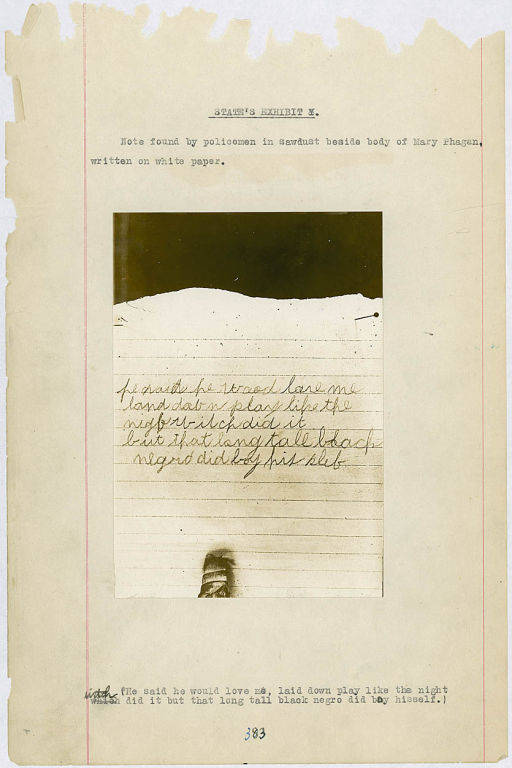 STATE'S EXHIBIT Y.
Note found by policemen in sawdust beside body of Mary Phagan,
written on white paper.
he said he wood love me
land dab n play like the
night witch did it
but that long tall black
negro did boy his slef
witch (He said he would love me, laid down play like the night
which did it but that long tall black negro did boy hisself.)
383